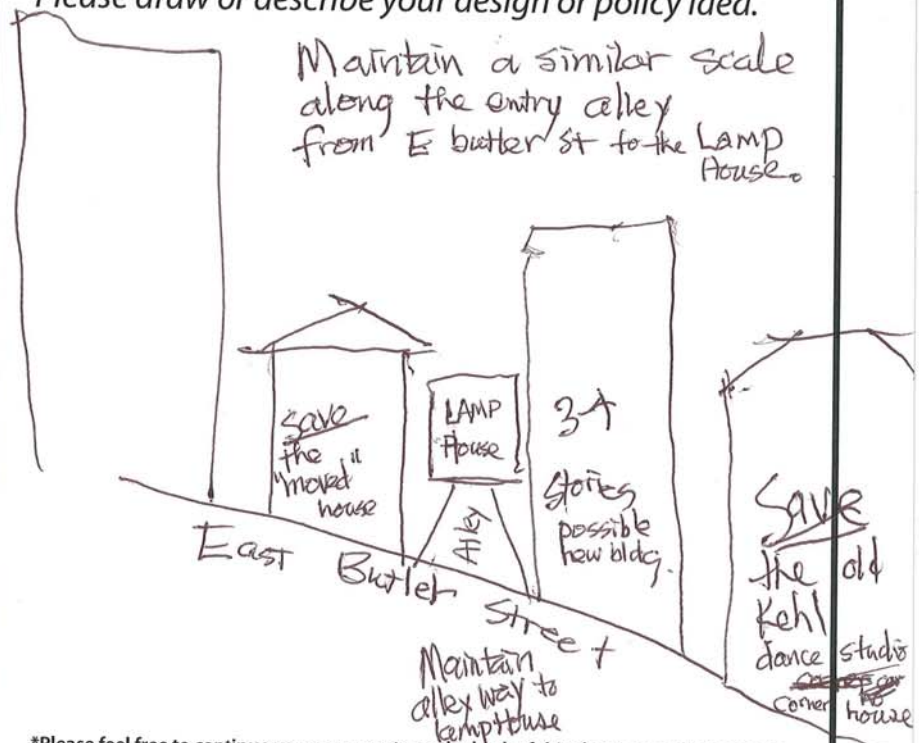 Please draw or describe your design or policy idea.
Maintain a similar scale
along the entry alley
from E butler St to the LAMP
House.
save
the
"moved"
house
LAMP
House
Alley
3-4
Stories
possible
new bldg.
Save
the old
Kehl
dance studio
corner house
East Butler Street
Maintain
alley way to
lamp House